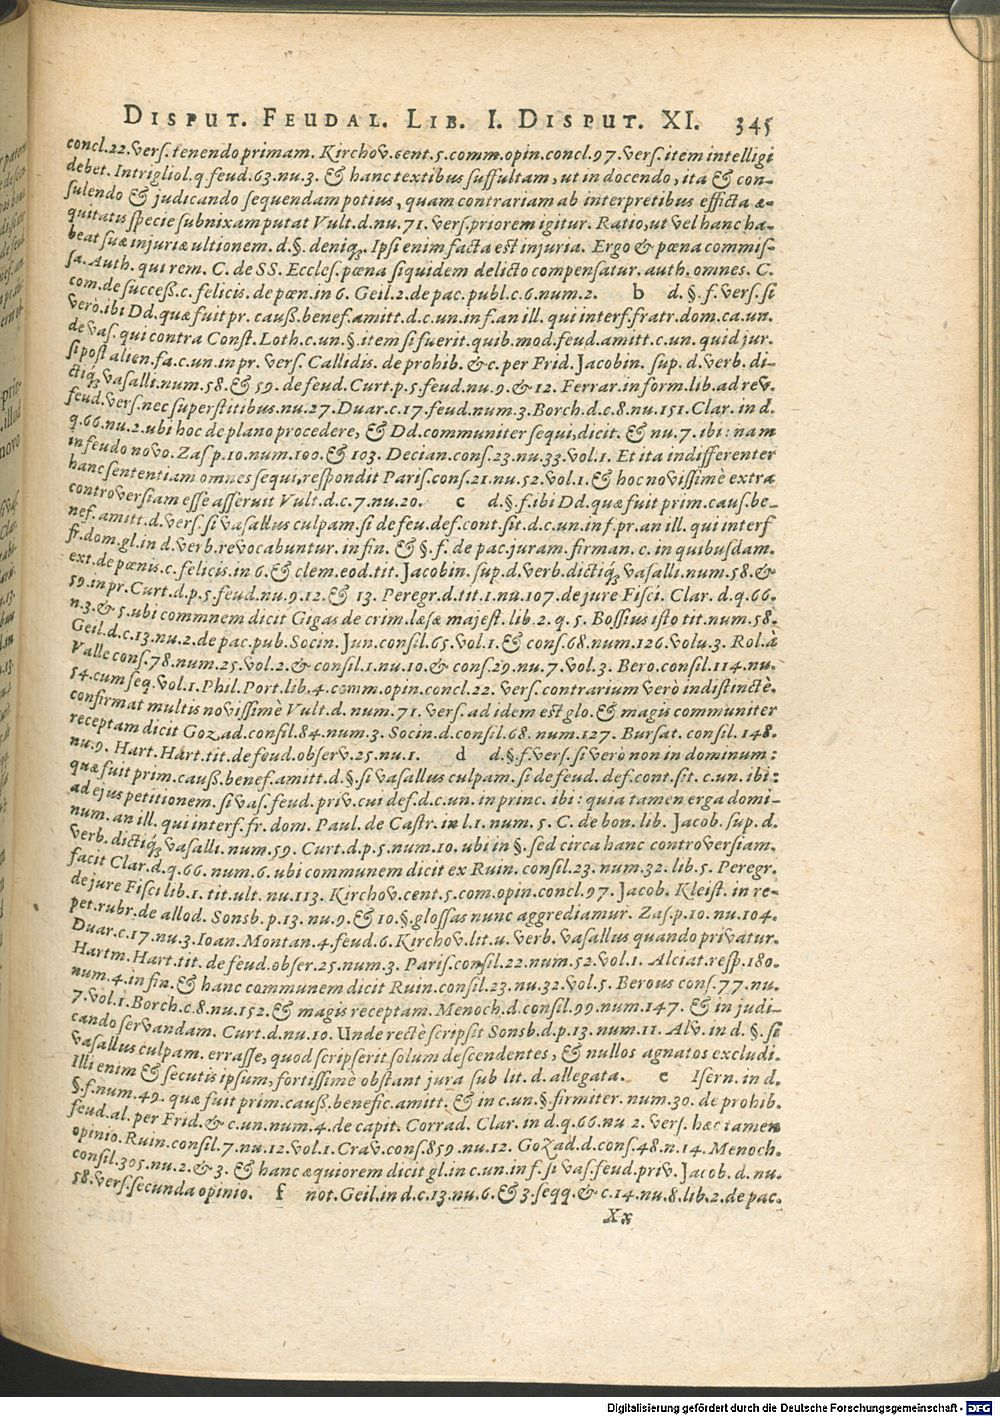 DISPUT. FEUDAL. LIB. I. DISPUT. XI. 345
concl.22.verſ.tenendo primam. Kirchov.cent.5.comm.opin.concl.97.verſ.item intelligi
debet. Intrigliol.q.feud.63.nu.3. & hanc textibus ſuffultam, ut in docendo, ita & con-
ſulendo & judicando ſequendam potius, quam contrariam ab interpretibus efficta æ-
quitatis ſpecie ſubnixam putat Vult.d.nu.71. verſ.priorem igitur. Ratio, ut vel hanc ha-
beat ſuæ injuriæ ultionem. d.§. deniq;. Ipſi enim facta eſt injuria. Ergo & pœna commiſ-
ſa. Auth. qui rem. C. de SS. Eccleſ. pœna ſiquidem delicto compenſatur. auth. omnes. C.
com.de ſucceſſ.c. felicis. de pœn.in 6. Geil.2.de pac.publ.c.6.num.2. b d.§.f.verſ.ſi
verò.ibi Dd.quæ fuit pr. cauſſ.benef.amitt.d.c.un.in f.an ill. qui interf.fratr.dom.ca.un.
de vaſ. qui contra Conſt. Loth.c.un.§.item ſi fuerit.quib.mod.feud.amitt.c.un. quid jur.
ſi poſt alien.fa.c.un.in pr. verſ. Callidis. de prohib. &c.per Frid. Jacobin. ſup. d.verb. di-
ctiq; vaſalli.num.58.& 59.de feud. Curt.p.5.feud.nu.9.& 12. Ferrar.in form.lib.ad rev.
feud.verſ.nec ſuperſtitibus.nu.27.Duar.c.17.feud.num.3.Borch.d.c.8.nu.151.Clar. in d.
q.66.nu.2.ubi hoc de plano procedere, & Dd.communiter ſequi,dicit. & nu.7.ibi: nam
in feudo novo. Zaſ p.10.num.100.& 103. Decian.conſ.23.nu.33.vol.1. Et ita indifferenter
hanc ſententiam omnes ſequi,reſpondit Pariſ.conſ.21.nu.52.vol.1.& hoc noviſſimè extra
controverſiam eſſe aſſeruit Vult.d.c.7.nu.20. c d.§.f.ibi Dd.quæ fuit prim.cauſ.be-
nef.amitt.d.verſ.ſi vaſallus culpam.ſi de feu.def.cont.ſit.d.c.un.in f.pr.an ill. qui interf
fr.dom.gl.in d.verb.revocabuntur.in fin. & §.f. de pac.juram.firman.c.in quibuſdam.
ext.de pœnis.c.felicis.in 6.& clem.eod.tit. Jacobin.ſup.d.verb.dictiq; vaſalli.num.58.&
59.in pr. Curt.d.p.5.feud.nu.9.12.& 13. Peregr.d.tit.1.nu.107.de jure Fiſci. Clar. d.q.66.
n.3.& 5.ubi commnem dicit Gigas de crim.læſæ majeſt.lib.2.q.5. Boſſius iſto tit.num.58.
Geil.d.c.13.nu.2.de pac.pub.Socin. Jun.conſil.65.vol.1.& conſ.68.num.126.volu.3. Rol.à
Valle conſ.78.num.25.vol.2.& conſil.1.nu.10.& conſ.29.nu.7.vol.3. Bero.conſil.114.nu.
54.cum ſeq.vol.1.Phil.Port.lib.4.comm.opin.concl.22. verſ.contrarium verò indiſtinctè.
confirmat multis noviſſimè Vult.d. num.71.verſ.ad idem eſt glo.& magis communiter
receptam dicit Gozad.conſil.84.num.3. Socin.d.conſil.68. num.127. Burſat.conſil.148.
nu.9. Hart. Hart.tit.de feud.obſerv.25.nu.1. d d.§.f.verſ.ſi verò non in dominum:
quæ fuit prim.cauſſ.benef.amitt.d.§.ſi vaſallus culpam.ſi de feud. def.cont.ſit.c.un.ibi:
ad ejus petitionem.ſi vaſ.feud.priv.cui def.d.c.un. in princ. ibi: quia tamen erga domi-
num.an ill. qui interf.fr. dom. Paul. de Caſtr. in l.1.num. 5. C. de bon. lib. Jacob. ſup. d.
verb. dictiq; vaſalli.num.59. Curt.d.p.5.num.10.ubi in §. ſed circa hanc controverſiam.
facit Clar.d.q.66. num.6.ubi communem dicit ex Ruin. conſil.23.num.32.lib.5. Peregr.
de jure Fiſci lib.1.tit.ult. nu.113. Kirchov.cent.5.com.opin.concl.97. Jacob. Kleiſt. in re-
pet.rubr.de allod. Sonsb.p.13. nu.9.& 10.§.gloſſas nunc aggrediamur. Zaſ.p.10. nu.104.
Duar.c.17.nu.3.Ioan. Montan.4.feud.6.Kirchov.lit.u.verb.vaſallus quando privatur.
Hartm.Hart.tit. de feud.obſer.25.num.3. Pariſ.conſil.22.num.52.vol.1. Alciat.reſp.180.
num.4.in fin. & hanc communem dicit Ruin.conſil.23.nu.32.vol.5. Berous conſ.77.nu.
7.vol.1.Borch.c.8.nu.152.& magis receptam. Menoch.d.conſil.99.num.147. & in judi-
cando ſervandam. Curt.d.nu.10. Unde rectè ſcripſit Sonsb.d.p.13.num.11. Alv. in d. §. ſi
vaſallus culpam. erraſſe, quod ſcripſerit ſolum deſcendentes, & nullos agnatos excludi.
Illi enim & ſecutis ipſum, fortiſſimè obſtant jura ſub lit. d. allegata. e Iſern. in d.
§.f.num.49. quæ fuit prim.cauſſ.benefic.amitt. & in c.un.§.firmiter. num.30. de prohib.
feud.al. per Frid.& c.un.num.4.de capit. Corrad. Clar. in d.q.66.nu 2. verſ. hæc tamen
opinio.Ruin.conſil.7.nu.12.vol.1. Crav.conſ.859.nu.12. Gozad.d.conſ.48.n.14.Menoch.
conſil.305.nu.2.& 3. & hanc æquiorem dicit gl.in c.un.in f.ſi vaſ.feud.priv. Jacob. d.nu.
58.verſ.ſecunda opinio. f not.Geil.in d.c.13.nu.6.& 3.ſeqq.& c.14.nu.8.lib.2.de pac.
Xx
Digitalisierung gefördert durch die Deutsche Forschungsgemeinschaft - DFG